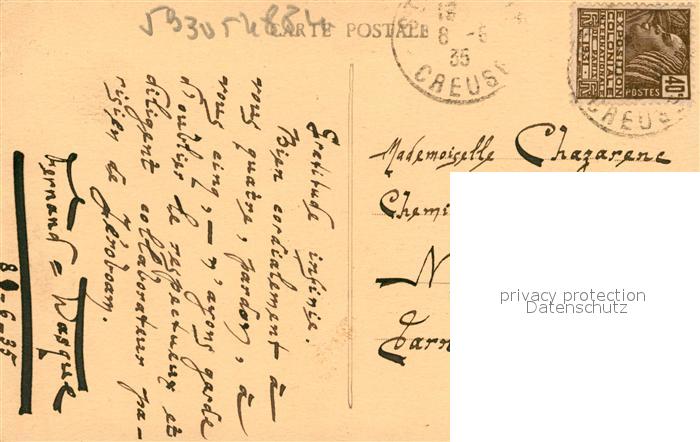 593054884
CARTE POSTALE
8 -6
35
CREUSE
EXPOSITION
COLONIALE
INTERNATIONALE
DE PARIS
1931
POSTES
40c
CREUSE
Gratitude infinie.
Bien cordialement à
vous quatre, pardon, à
vous cinq, — n'ayons garde
d'oublier le respectueux et
diligent collaborateur pa-
risien de Jéroboam.
Fernand = Dasque
8-6-35
Mademoiselle Chazarene
Chemi
N
Tarn
privacy protection
Datenschutz